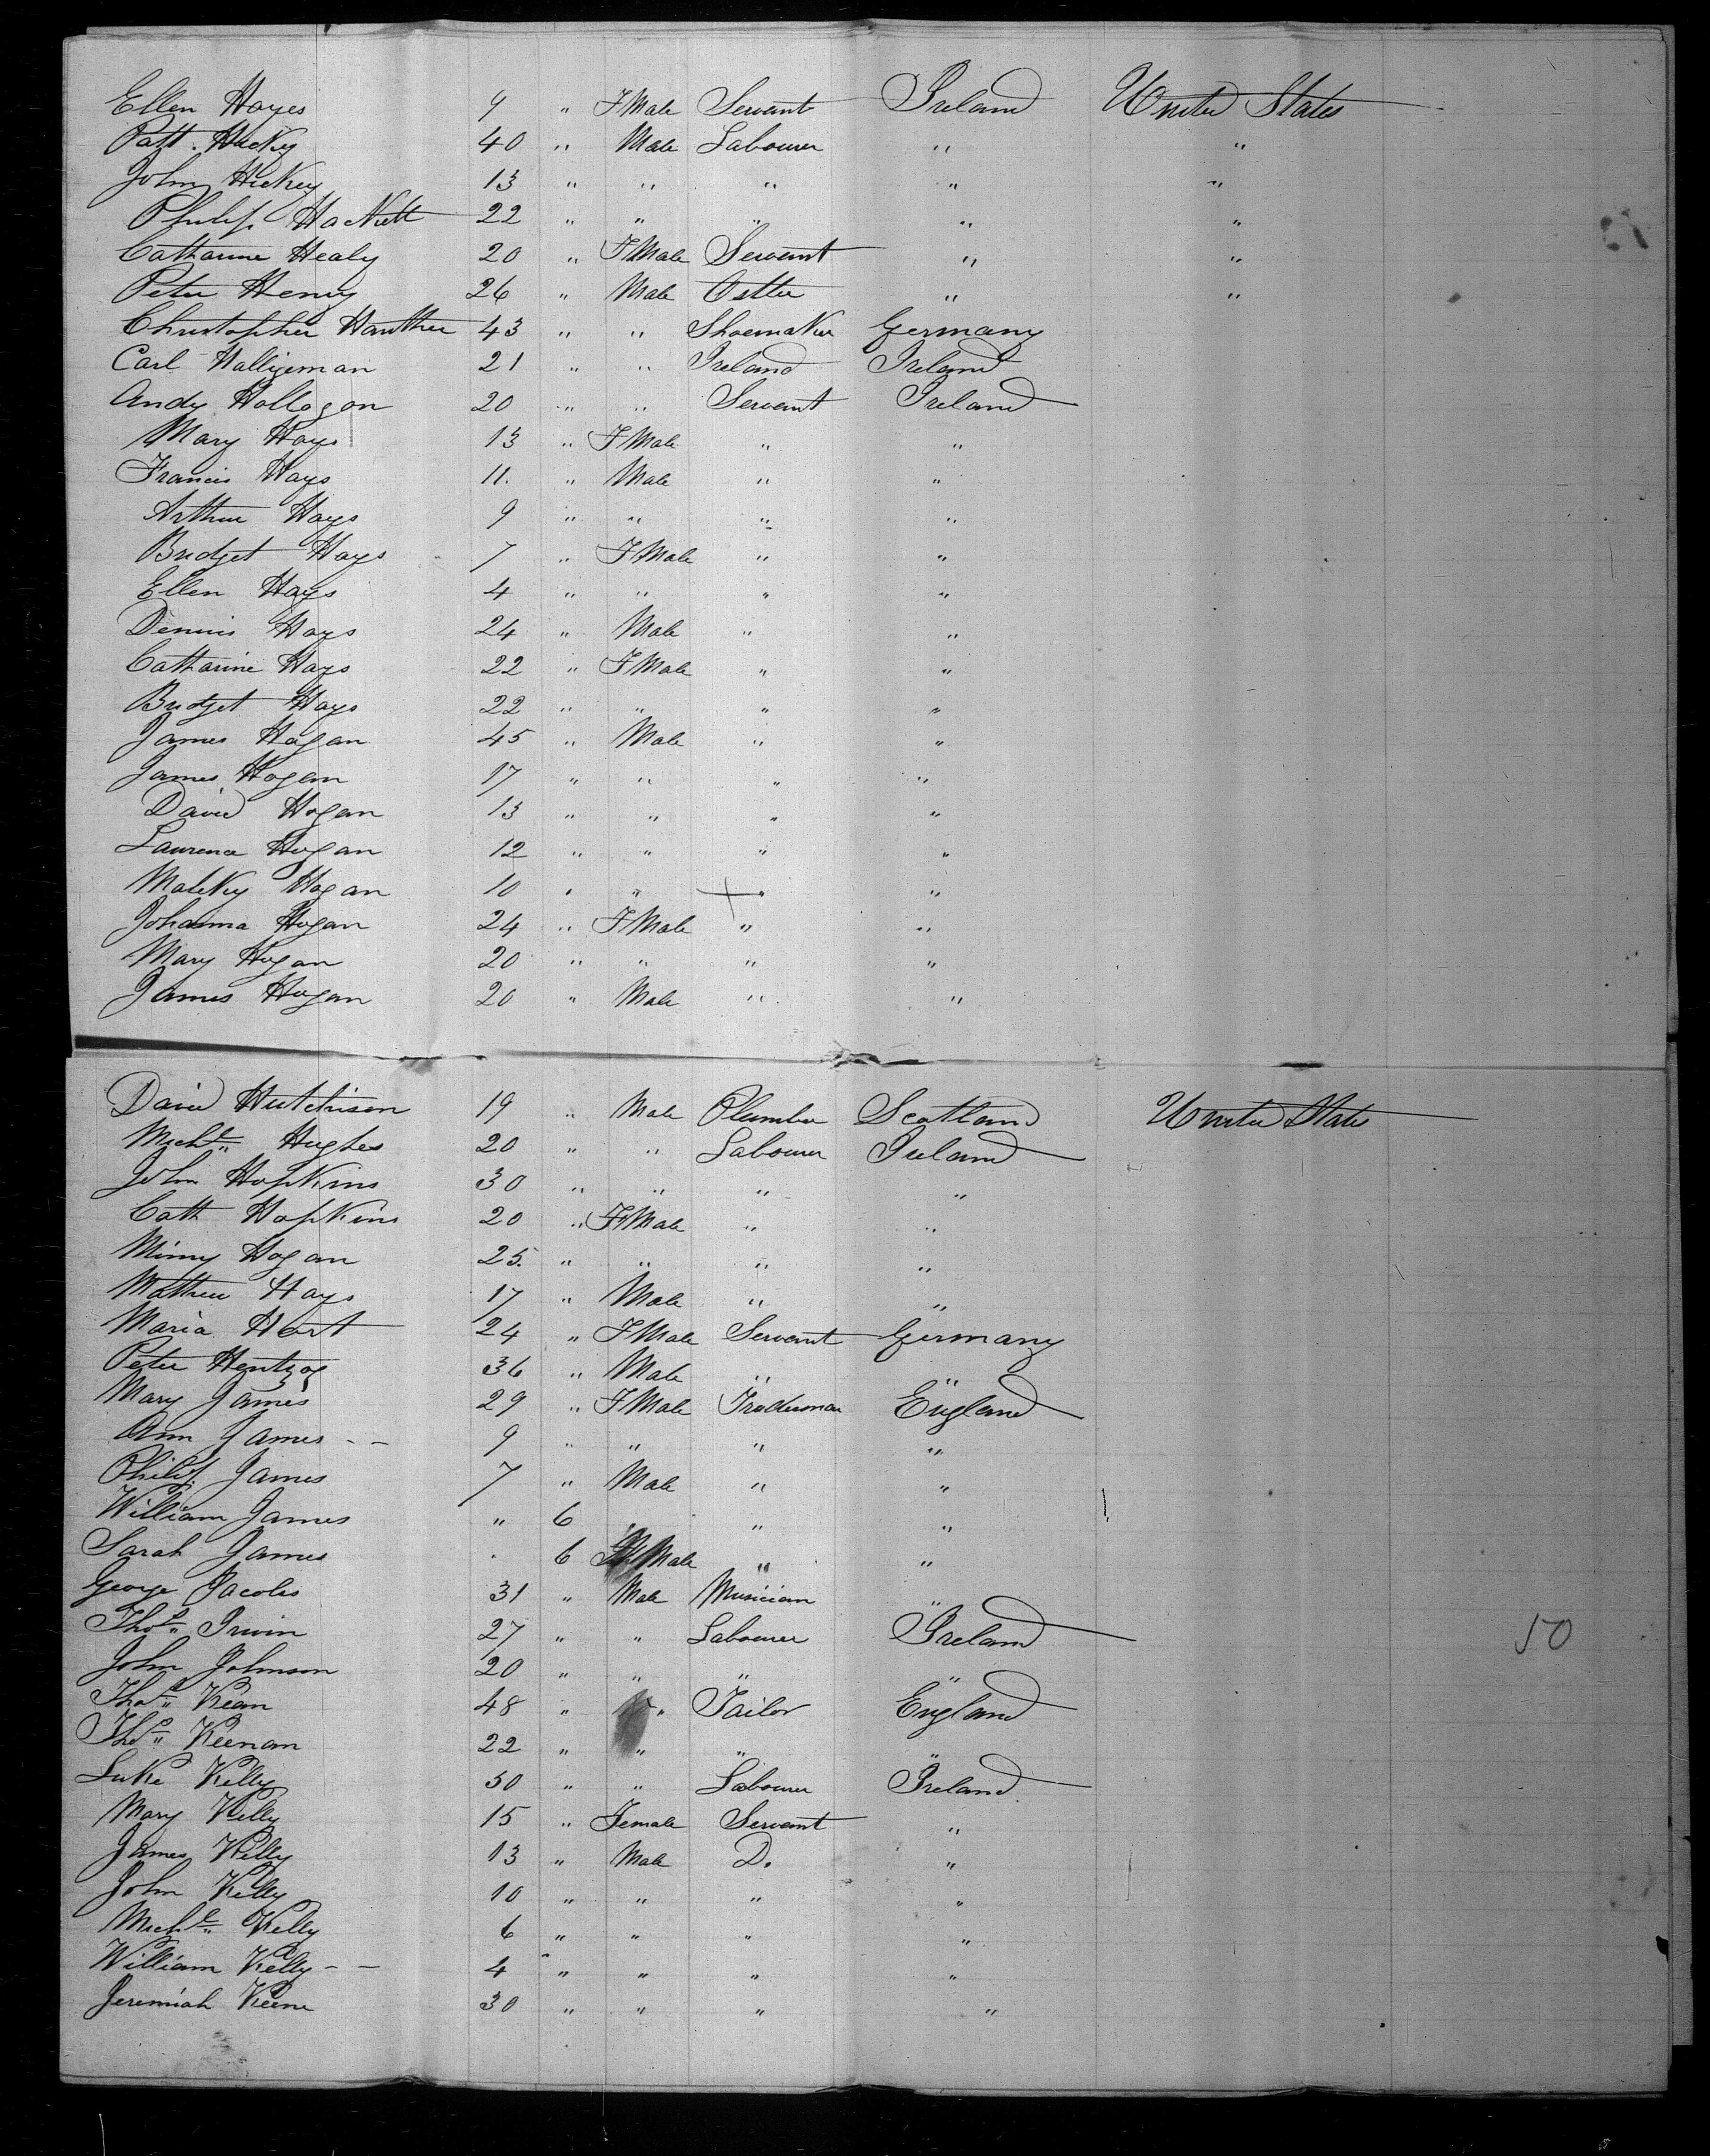 Ellen Hayes 9 " FMale Servant Ireland United States
Patt. Hickey 40 " Male Labourer " "
John Hickey 13 " " " " "
Philip Hackett 22 " " " " "
Catharine Healy 20 " FMale Servant " "
Peter Henry 26 " Male Ostler " "
Christopher Hauther 43 " " Shoemaker Germany
Carl Halligeman 21 " " Ireland Ireland
Andy Hollogon 20 " " Servant Ireland
Mary Hays 13 " FMale " "
Francis Hays 11. " Male " "
Arthur Hays 9 " " " "
Bridget Hays 7 " FMale " "
Ellen Hays 4 " " " "
Dennis Hays 24 " Male " "
Catharine Hays 22 " FMale " "
Bridget Hays 22 " " " "
James Hogan 45 " Male " "
James Hogan 17 " " " "
David Hogan 13 " " " "
Laurence Hogan 12 " " " "
Malcky Hogan 10 " " " "
Johanna Hogan 24 " FMale " "
Mary Hogan 20 " " " "
James Hogan 20 " Male " "
David Hutchison 19 " Male Plumber Scotland United States
Michl Hughes 20 " " Labourer Ireland
John Hopkins 30 " " " "
Cath Hopkins 20 " FMale " "
Minny Hogan 25. " " " "
Mathew Hays 17 " Male " "
Maria Hort 24 " FMale Servant Germany
Peter Hentzog 36 " Male " "
Mary James 29 " FMale Tradesman England
Ann James - - 9 " " " "
Philip James 7 " Male " "
William James " 6 " " "
Sarah James " 6 FMale " "
George Jacobs 31 " Male Musician "
Thos Irwin 27 " " Labourer Ireland
50
John Johnson 20 " " " "
Thos Kean 48 " " Tailor England
Thos Keenan 22 " " " "
Luke Kelly 50 " " Labourer Ireland
Mary Kelly 15 " Female Servant "
James Kelly 13 " Male Do "
John Kelly 10 " " " "
Michl Kelly 6 " " " "
William Kelly - - 4 " " " "
Jeremiah Keene 30 " " " "